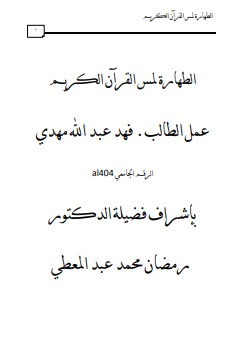 الطهارة لمس القرآن الكريم
١
الطهارة لمس القرآن الكريم
عمل الطالب . فهد عبد الله مهدي
الرقم الجامعي al404
بإشراف فضيلة الدكتور
رمضان محمد عبد المعطي